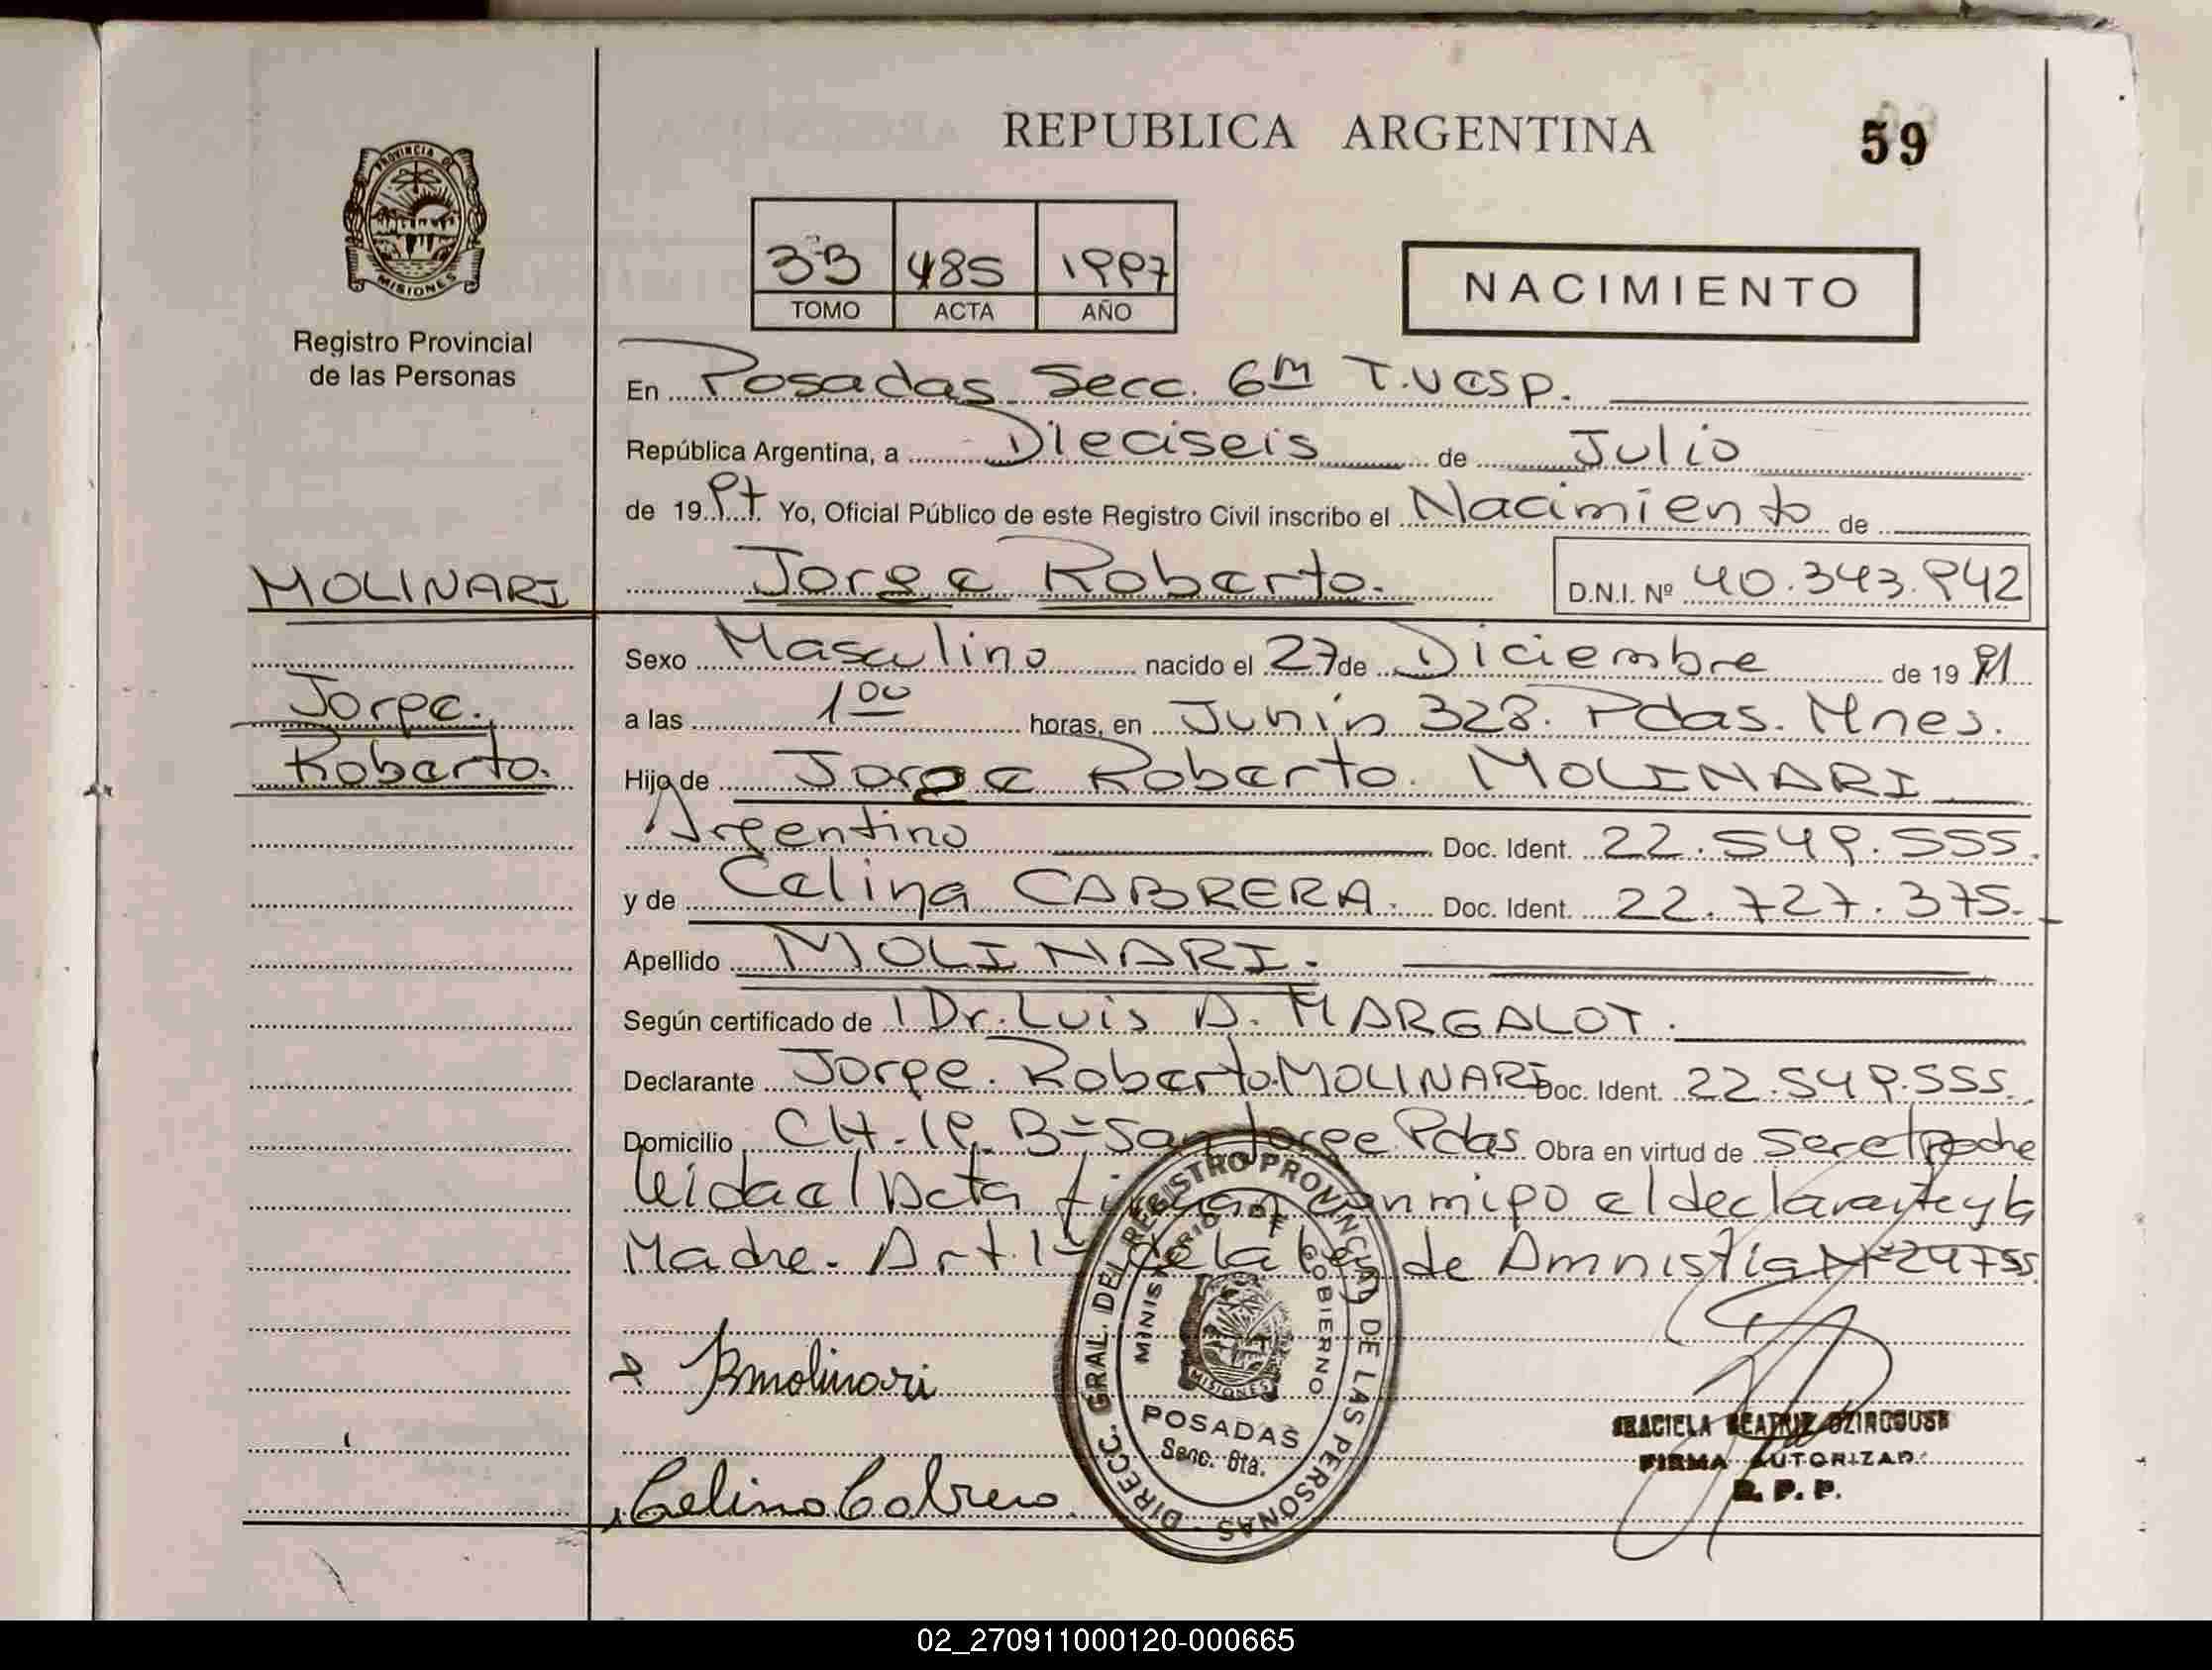 REPUBLICA ARGENTINA
59
PROVINCIA DE
MISIONES
Registro Provincial
de las Personas
33 485 1997
TOMO ACTA AÑO
NACIMIENTO
En Posadas Secc. 6m T. Vesp.
República Argentina, a Dieciseis de Julio
de 1997 Yo, Oficial Público de este Registro Civil inscribo el Nacimiento de
MOLINARI
Jorge Roberto.
D.N.I. Nº 40.343.942
Jorge.
Roberto.
Sexo Masculino nacido el 27 de Diciembre de 1991
a las 1 00 horas, en Junín 328. Pdas. Mnes.
Hijo de Jorge Roberto. MOLINARI
Argentino Doc. Ident. 22.549.555.
y de Celina CABRERA. Doc. Ident. 22.727.375.
Apellido MOLINARI.
Según certificado de Dr. Luis A. MARGALOT.
Declarante Jorge Roberto MOLINARI Doc. Ident. 22.549.555.
Domicilio CH-19. Bº San Jorge Pdas Obra en virtud de Ser el padre
leida el Acta firman conmigo el declarante y la
Madre. Art. 1º de la ley de Amnistia Nº 24755
JRmolinari
Celina Cabrera
DIRECC. GRAL. DEL REGISTRO PROVINCIAL DE LAS PERSONAS
MINISTERIO DE GOBIERNO
MISIONES
POSADAS
Secc. 6ta.
GRACIELA BEATRIZ
FIRMA AUTORIZADA
R. P. P.
02_270911000120-000665